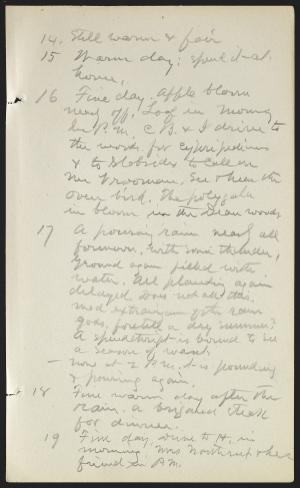 14. Still warm & fair
15 Warm day; spend it at
home.
16 Fine day. Apple bloom
nearly off. Loaf in morning
In P.M. C.B. & I drive to
the woods for cypripediums
& to Slabsides to call on
Mr Vrooman. See & hear the
oven bird. The polygala
in bloom in the Dean woods
17 A pouring rain nearly all
forenoon, with some thunder,
ground again filled with
water. All planting again
delayed. Does not all this
mad extravagance of the rain
gods foretell a dry summer?
A spendthrift is bound to see
a season of want.
— now at 2 P.M. it is pounding
& pouring again.
18 Fine warm day after the
rain. a
for dinner.
19 Fine day, drive to H. in
morning. Mrs Northrup & her
friend in P.M.